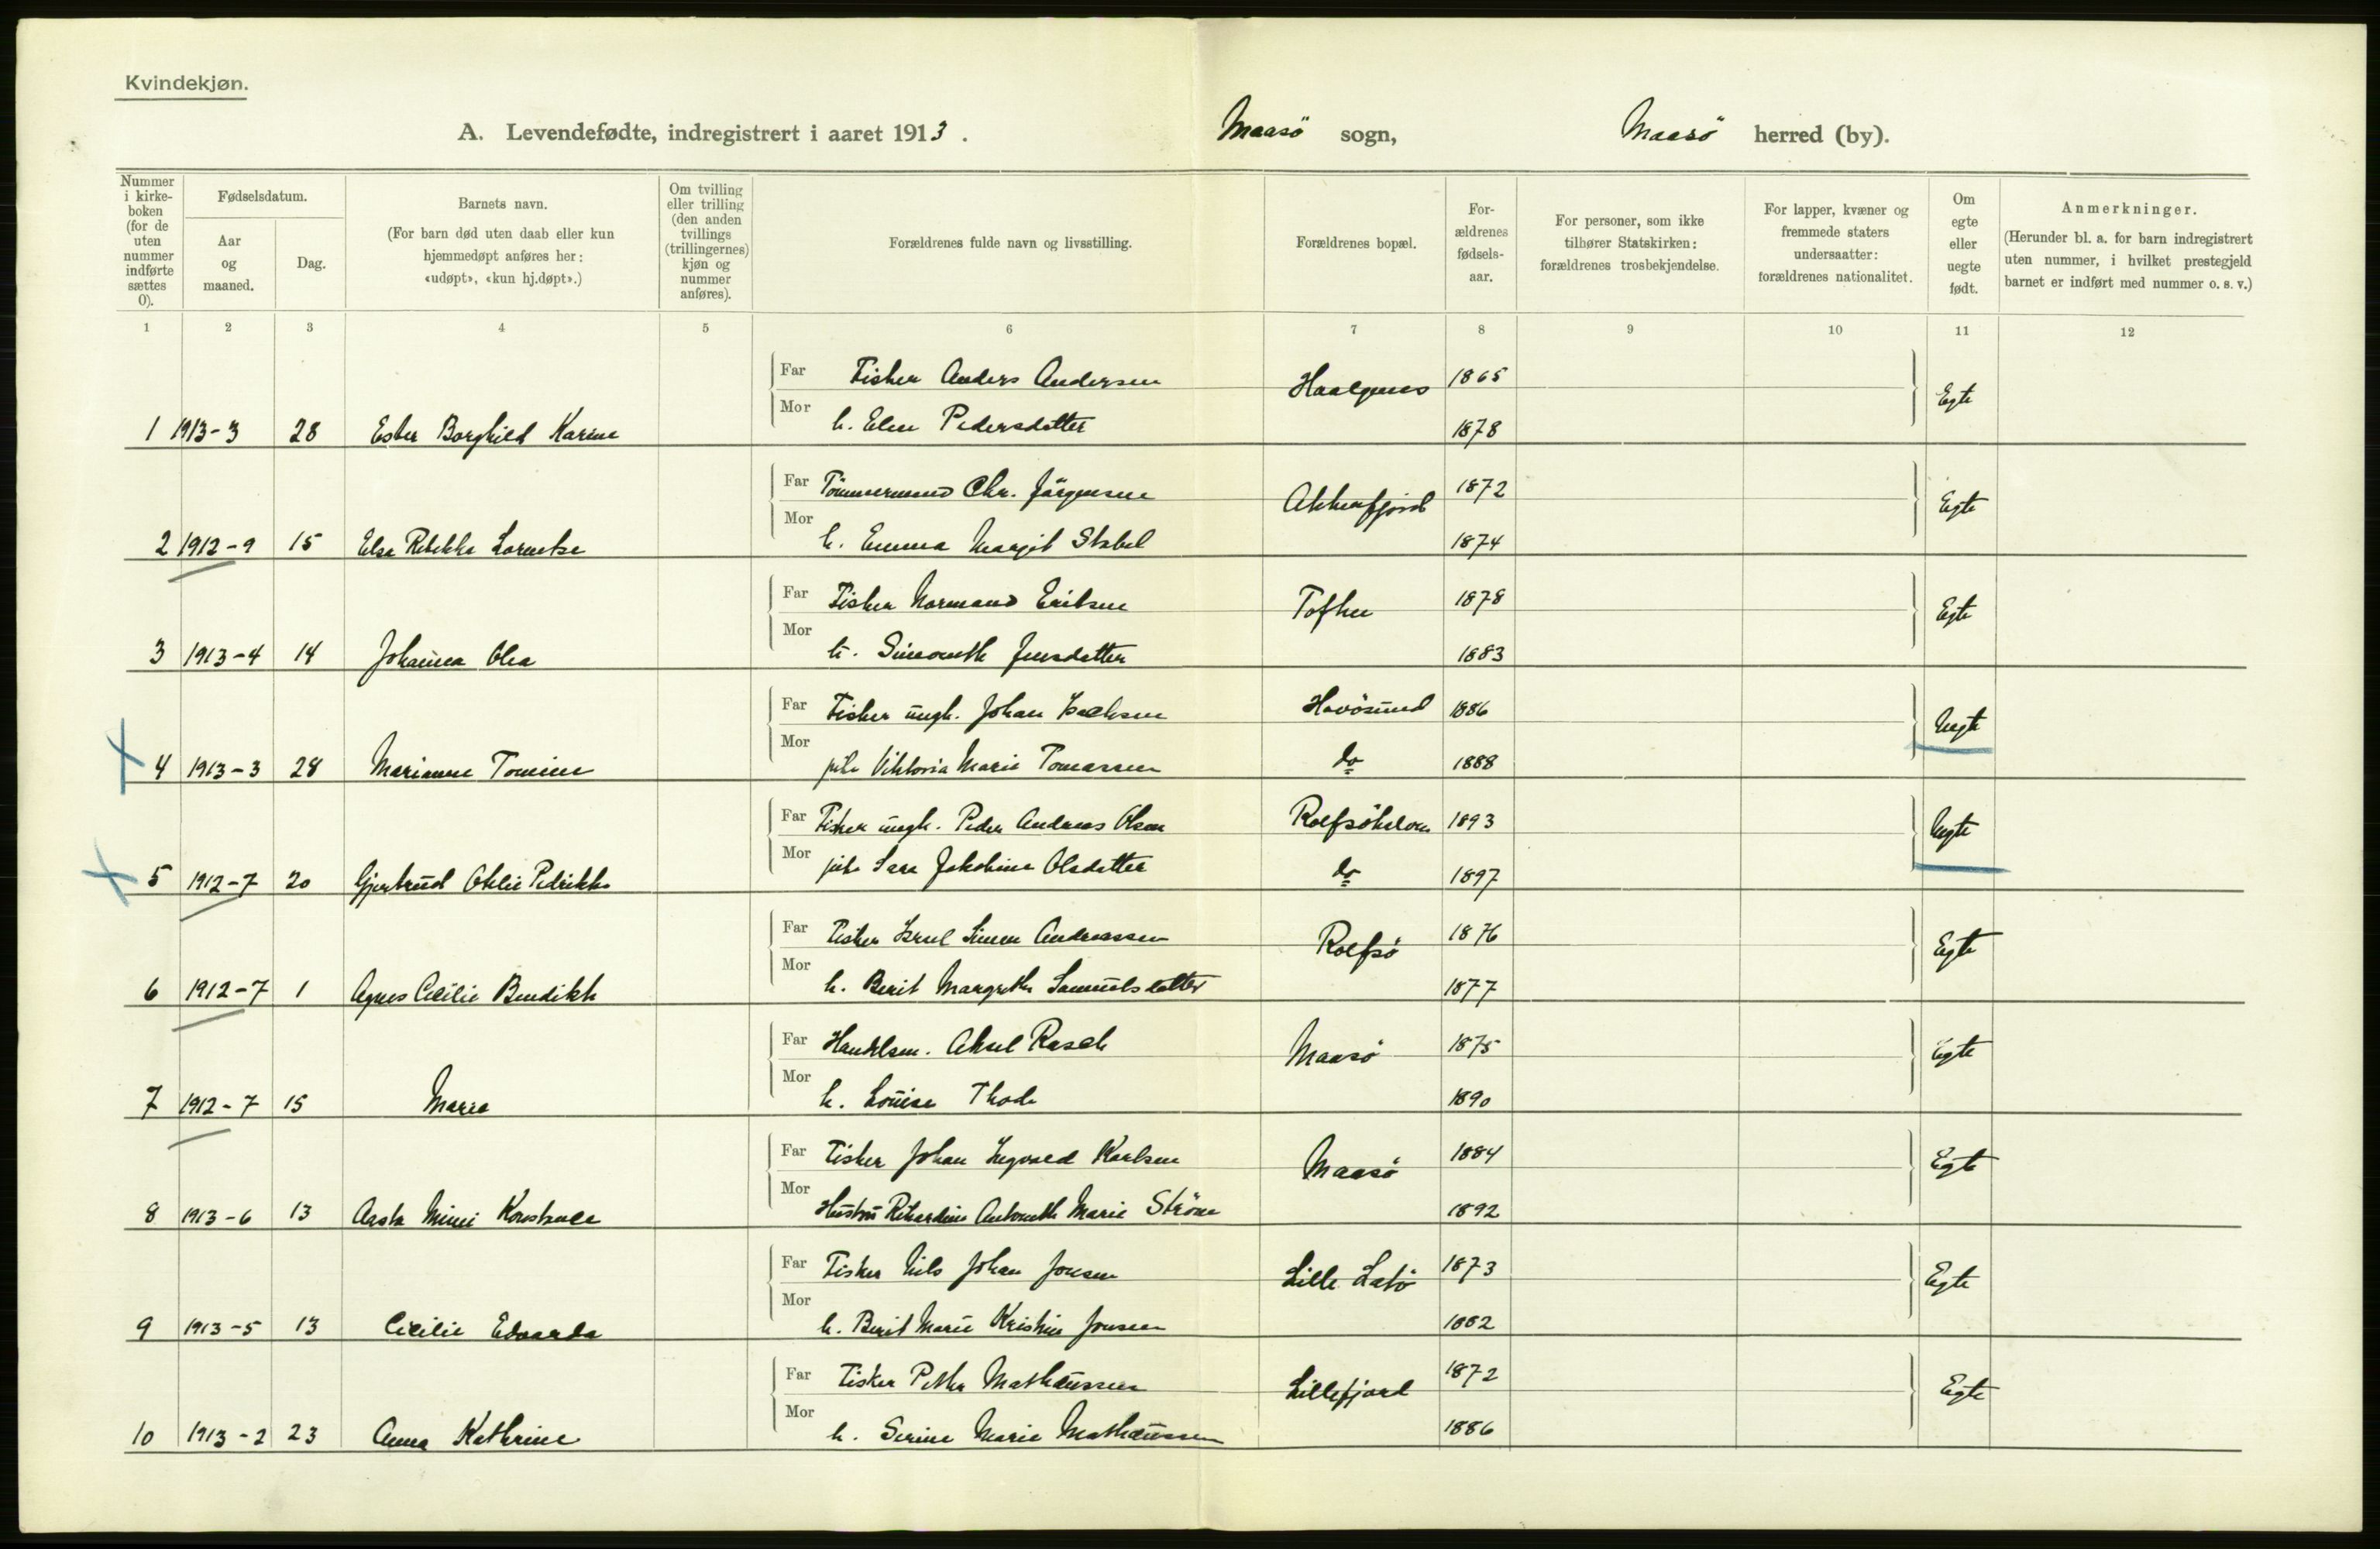 Kvindekjøn.
A. Levendefødte, indregistrert i aaret 1913. Maasö sogn, Maasö herred (by).
Nummer i kirke-boken (for de uten nummer indførte sættes 0).
Fødselsdatum.
Aar og maaned.
Dag.
Barnets navn.
(For barn død uten daab eller kun hjemmedøpt anføres her: «udøpt», «kun hj.døpt».)
Om tvilling eller trilling (den anden tvillings (trillingernes) kjøn og nummer anføres).
Forældrenes fulde navn og livsstilling.
Forældrenes bopæl.
For-ældrenes fødsels-aar.
For personer, som ikke tilhører Statskirken: forældrenes trosbekjendelse.
For lapper, kvæner og fremmede staters undersaatter: forældrenes nationalitet.
Om egte eller uegte født.
Anmerkninger.
(Herunder bl. a. for barn indregistrert uten nummer, i hvilket prestegjeld barnet er indført med nummer o. s. v.)
1 2 3 4 5 6 7 8 9 10 11 12
Far Fisker Anders Andersen 1865
Egte
Mor h. Elen Pedersdatter 1878
1 1913-3 28 Ester Borghild Karine
Far Tömmermand Chr. Jörgensen Akkarfjord 1872
Egte
Mor h. Emma Margit Stabel 1874
2 1912-9 15 Elsa Rebekka Lorentse
Far Fisker Normand Eriksen 1878
Egte
Mor h. Simonette Jensdatter 1883
3 1913-4 14 Johanna Olea
Far Fisker ungk. Johan Isaksen Havösund 1886
Uegte
Mor pike Viktoria Marie Tomassen do 1888
4 1913-3 28 Marianne Tomine
Far Fisker ungk. Peder Andreas Olsen 1893
Uegte
Mor pike Sara Jakobine Olsdatter do 1897
5 1912-7 20 Gjertrud Oklie Pedrikke
Far Fisker Israel Simon Andreassen Rolfsö 1876
Egte
Mor h. Berit Margrethe Samuelsdatter 1877
6 1912-7 1 Agnes Cecilie Bendikte
Far Handelsm. Aksel Rasch Maasö 1875
Egte
Mor h. Louise Thode 1890
7 1912-7 15 Maria
Far Fisker Johan Ingvald Karlsen Maasö 1884
Egte
Mor Hustru Rikardine Antonette Marie Ström 1892
8 1913-6 13 Aasta Mimi Konstance
Far Fisker Nils Johan Jonsen Lille Latö 1873
Egte
Mor h. Berit Marie Kristine Jonsen 1882
9 1913-5 13 Cecilie Edvarda
Far Fisker Petter Mathæussen Lillefjord 1872
Egte
Mor h. Serine Marie Mathæussen 1886
10 1913-2 23 Anna Kathrine